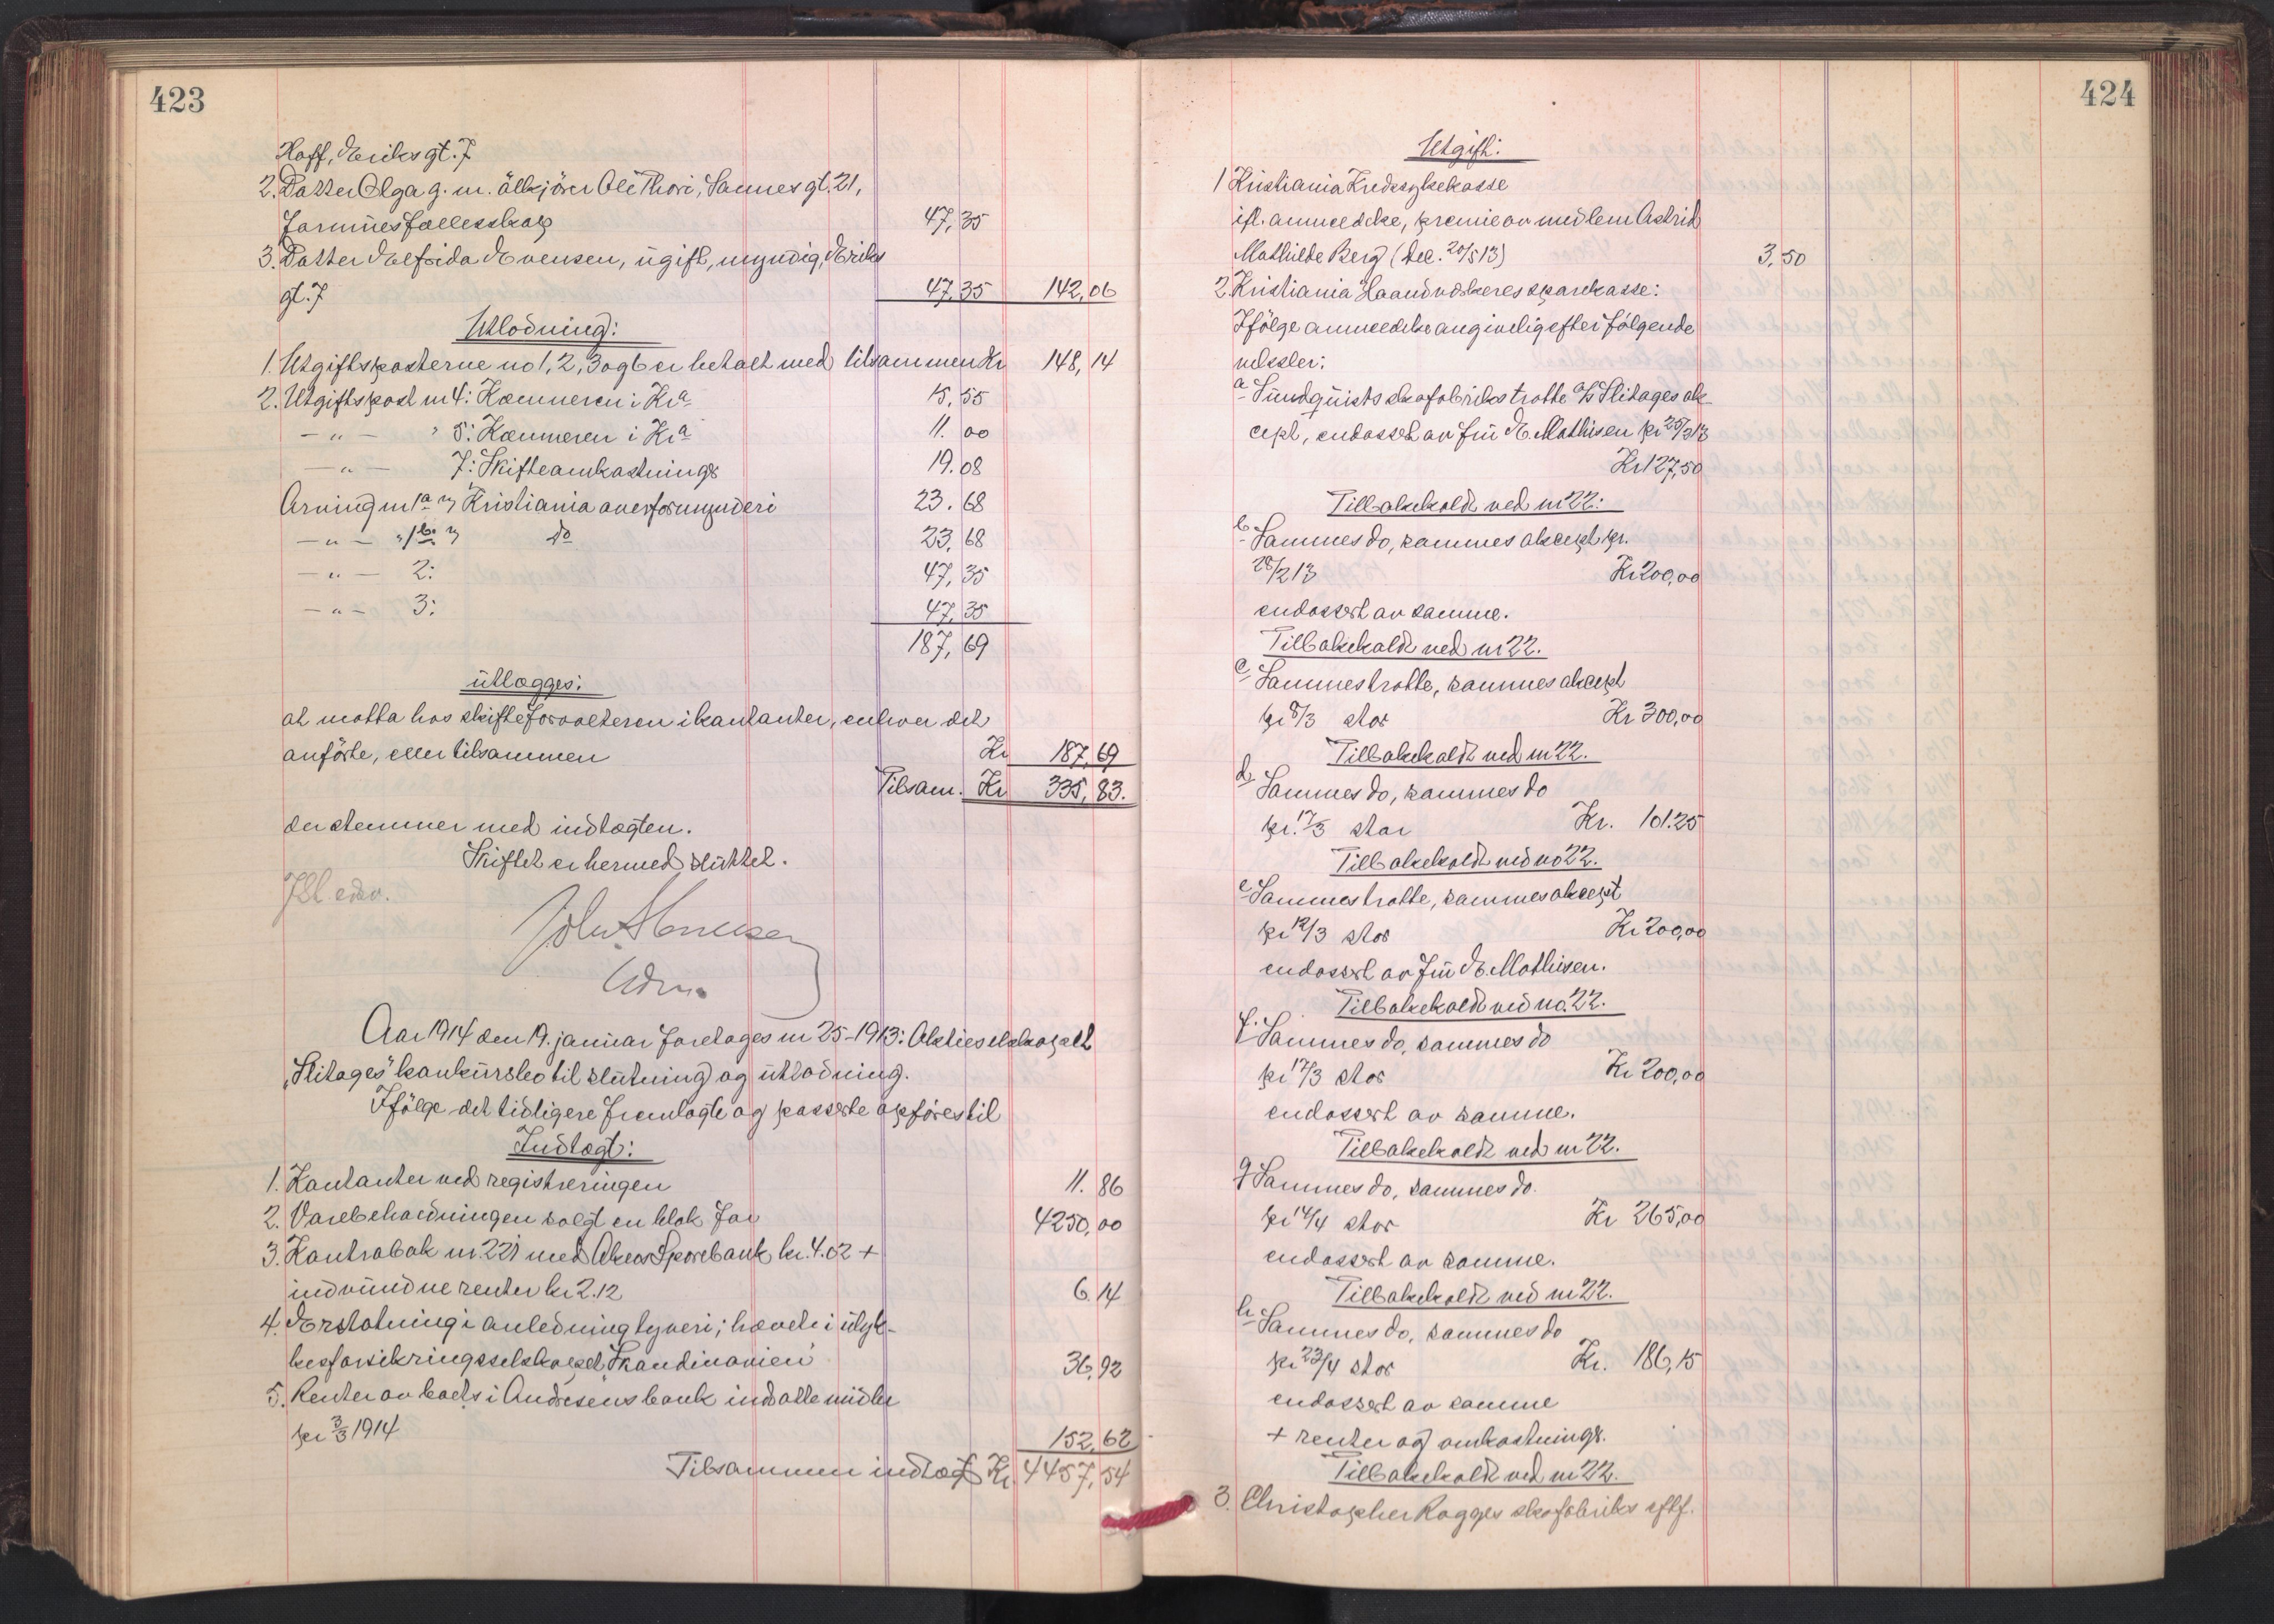 423
Hoff, Eriks gt. 7
2. Datter Olga g. m. ölkjörer Ole Thori, Sannes gt. 21,
formues fællesskap 47,35
3. Datter Elfrida Evensen, ugift, myndig, Eriks
gt. 7 47,35 142,06
Utlodning:
1. Utgiftsposterne no 1, 2, 3 og 6 er betalt med tilsammen Kr 148,14
2. Utgiftspost nr 4: Kæmneren i Kr.a 15,55
— " — " 5: Kæmneren i Kr.a 11.00
— " — 7: Skifteomkostninger 19.08
Arving nr 1a ɔ: Kristiania overformynderi 23.68
— " — " 1b ɔ: do 23,68
— " — 2: 47,35
— " — 3: 47,35
187,69
utlægges:
at motta hos skifteforvalteren i kontanter, enhver det
anförte, eller tilsammen Kr 187,69
Tilsam. Kr 335,83.
der stemmer med indtægten.
Skiftet er hermed sluttet.
Aar 1914 den 19. januar foretages nr 25-1913: Aktieselskapet
„Slitages" konkursbo til slutning og utlodning.
Ifölge det tidligere fremlagte og passerte opföres til
Indtægt:
1. Kontanter ved registreringen 11.86
2. Varebeholdningen solgt en blok for 4250,00
3. Kontrabok nr 221 med Akers Sparebank kr. 4.02 +
indvundne renter kr 2.12 6.14
4. Erstatning i anledning tyveri; hævet i ulyk-
kesforsikringsselskapet „Skandinavien" 36,92
5. Renter av boets i Andresens bank indsatte midler
pr 3/3 1914 152,62
Tilsammen indtægt Kr. 4457,54
424
Utgift:
1 Kristiania Kredssykekasse
ifl. anmeldelse, premie av medlem Astrid
Mathilde Berg (Dec. 20/5 13) 3,50
2. Kristiania Haandverkeres sparekasse:
Ifölge anmeldelse angivelig efter fölgende
veksler:
a Sundquists skofabriks tratte A/S Slitages ak-
cept, endossert av Fru E. Mathisen pr 25/3 13
Kr 127,50
Tilbakekaldt ved nr 22.
b Sammes do, sammes akcept pr.
28/2 13 Kr 200,00
endossert av samme.
Tilbakekaldt ved nr 22.
c Sammes tratte, sammes akcept
pr 8/3 stor Kr 300,00
Tilbakekaldt ved nr 22.
d Sammes do, sammes do
pr. 17/3 stor Kr. 101.25
Tilbakekaldt ved no 22.
e Sammes tratte, sammes akcept
pr 12/3 stor Kr 200,00
endossert av Fru E. Mathisen.
Tilbakekaldt ved no. 22.
f. Sammes do, sammes do
pr 17/3 stor Kr 200,00
endossert av samme.
Tilbakekaldt ved nr 22.
g Sammes do, sammes do.
pr 14/4 stor Kr 265,00
endossert av samme.
Tilbakekaldt ved nr 22.
h Sammes do, sammes do
pr 23/4 stor Kr. 186,15
endossert av samme
+ renter og omkostninger.
Tilbakekaldt ved nr 22.
3. Christopher Rogges skofabriks eftf.